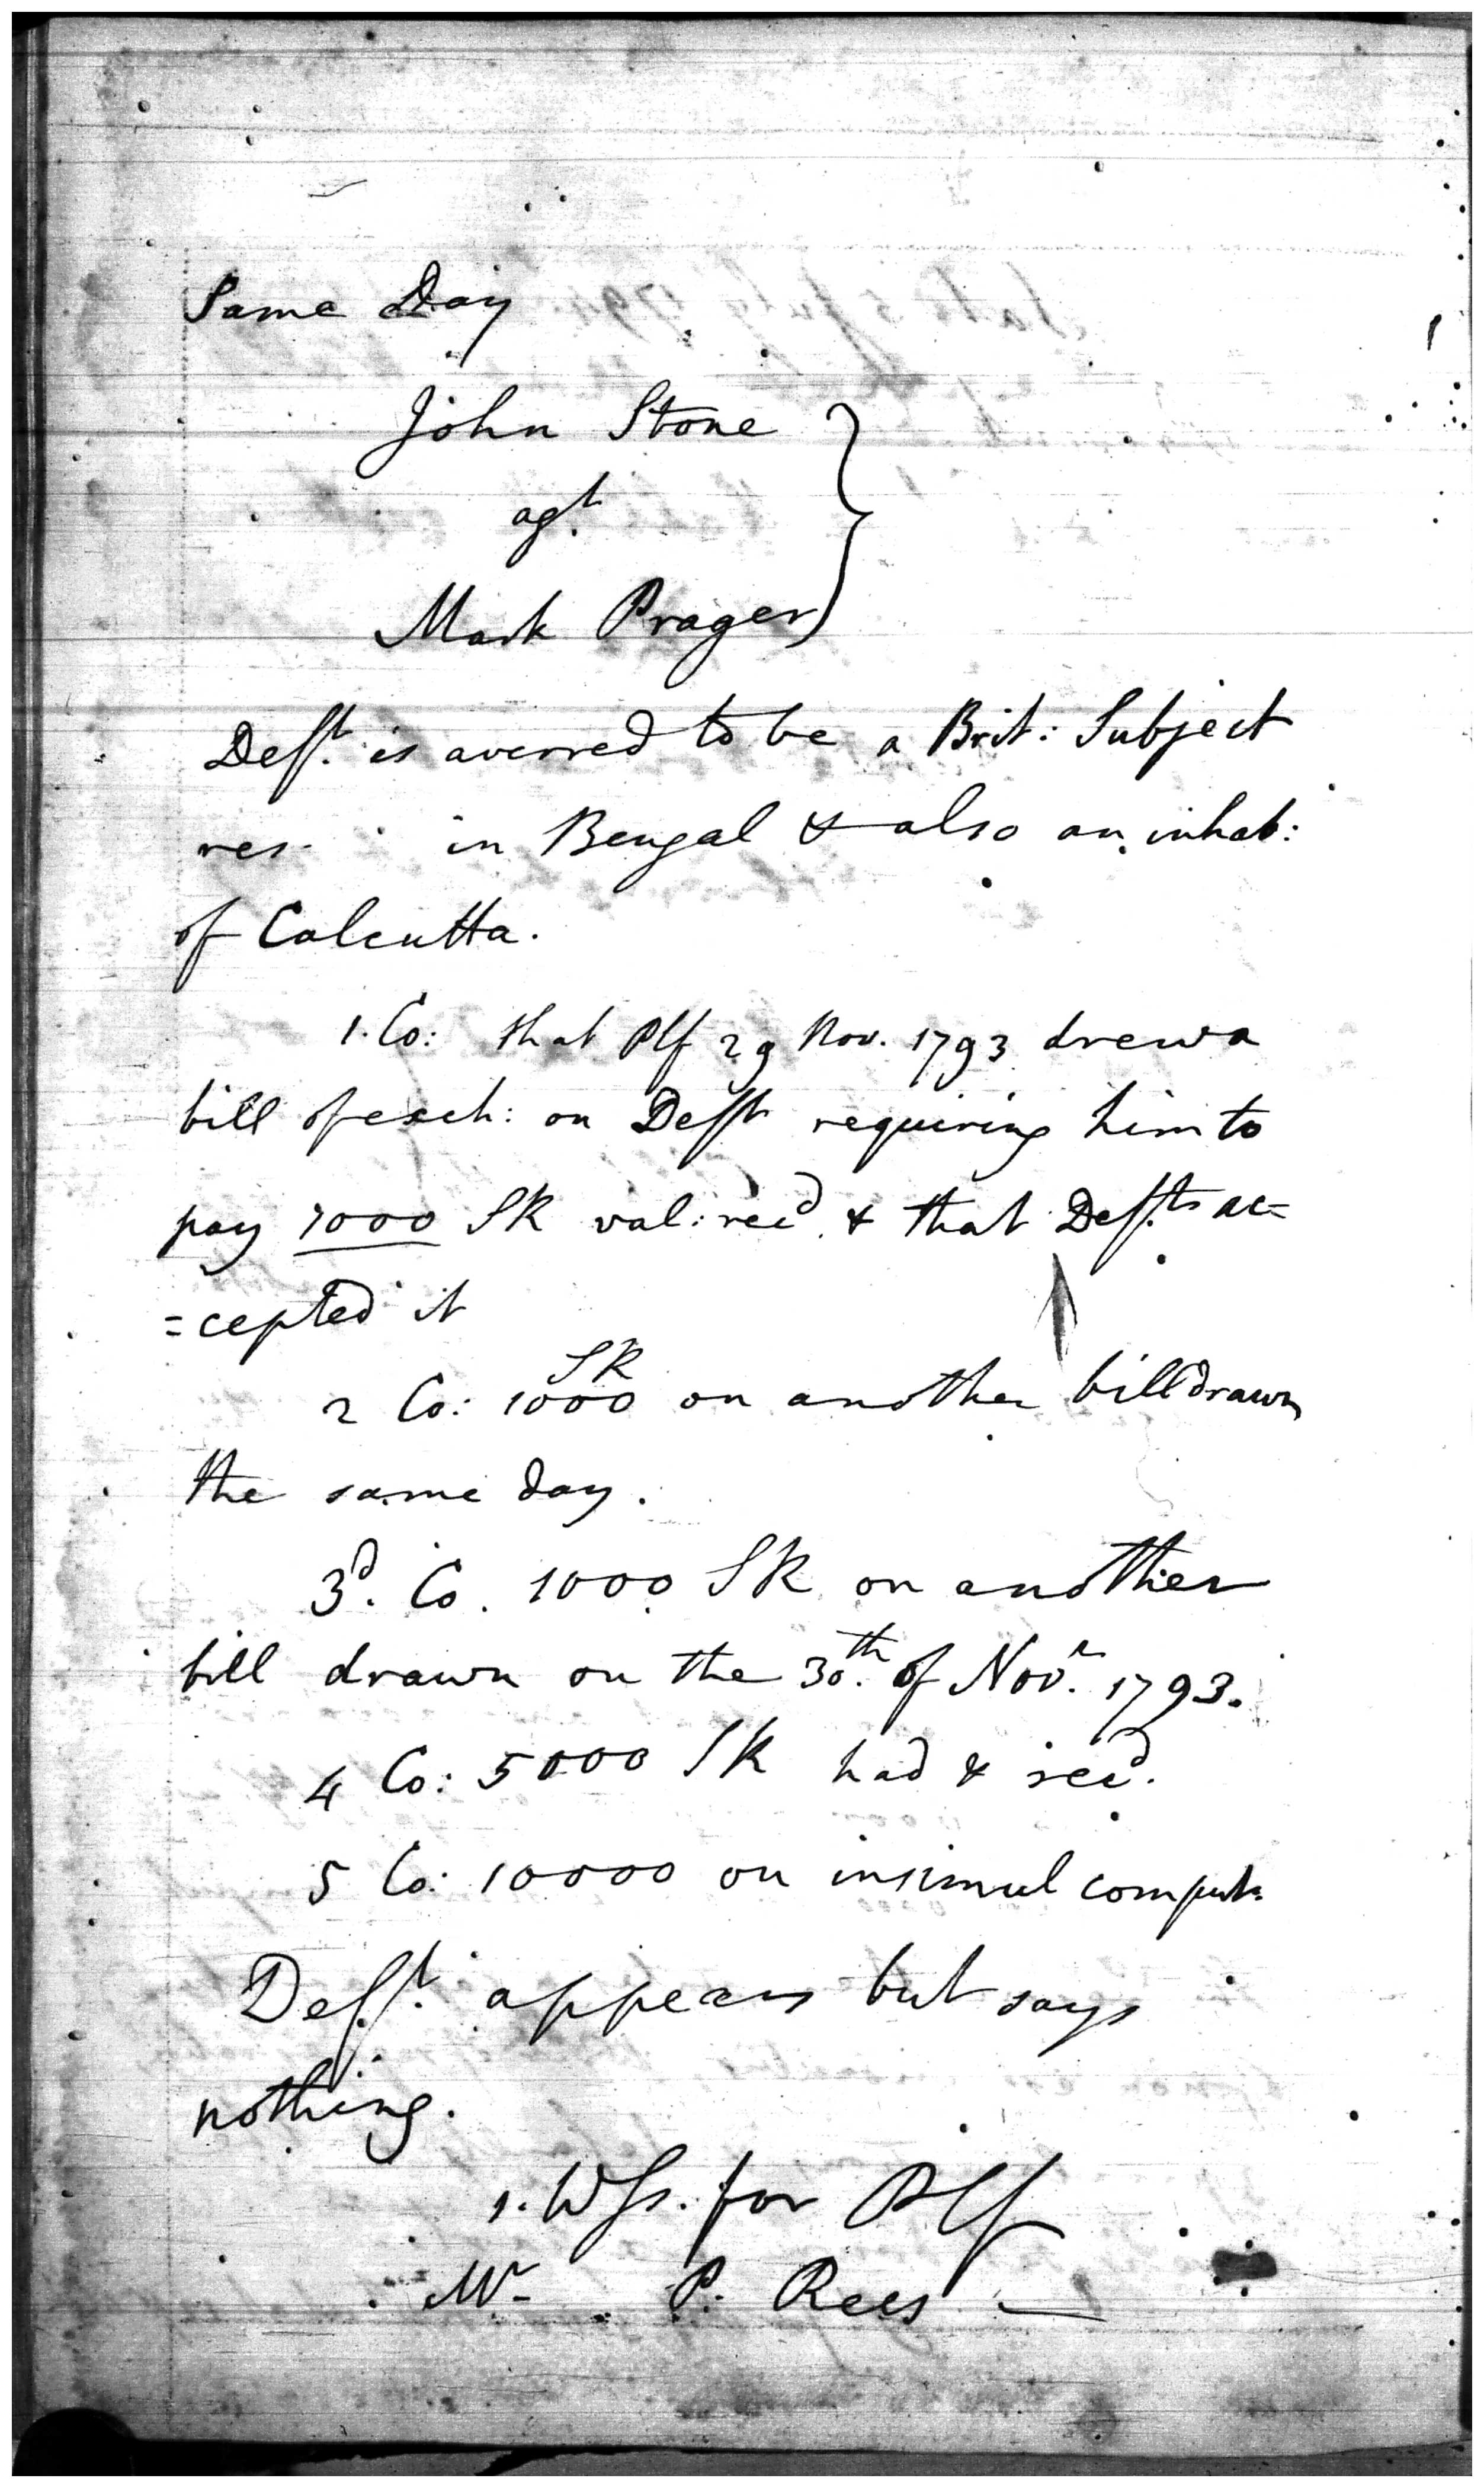 Same Day
John Stone
agt.
Mark Prager
Deft. is averred to be a Brit: Subject
res. in Bengal & also an inhab:
of Calcutta.
1. Co: that Plf 29 Nov. 1793 drew a
bill of exch: on Deft requiring him to
pay 1000 SR val: recd. & that Deft. ac=
=cepted it
2 Co: 1000 SR on another bill drawn
the same day.
3d. Co. 1000 SR on another
bill drawn on the 30th. of Novr. 1793.
4 Co: 5000 SR had & recd.
5 Co: 10000 on insimul comput.
Deft. appears but says
nothing.
1. Wss. for Plf
Mr P. Rees —